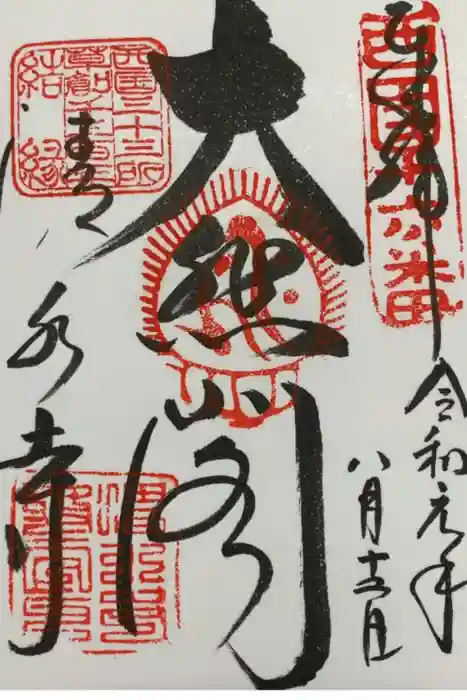 西国十六番
奉拝
令和元年
八月十五日
大悲閣
西国三十三所
草創千三百年
結縁
清水寺